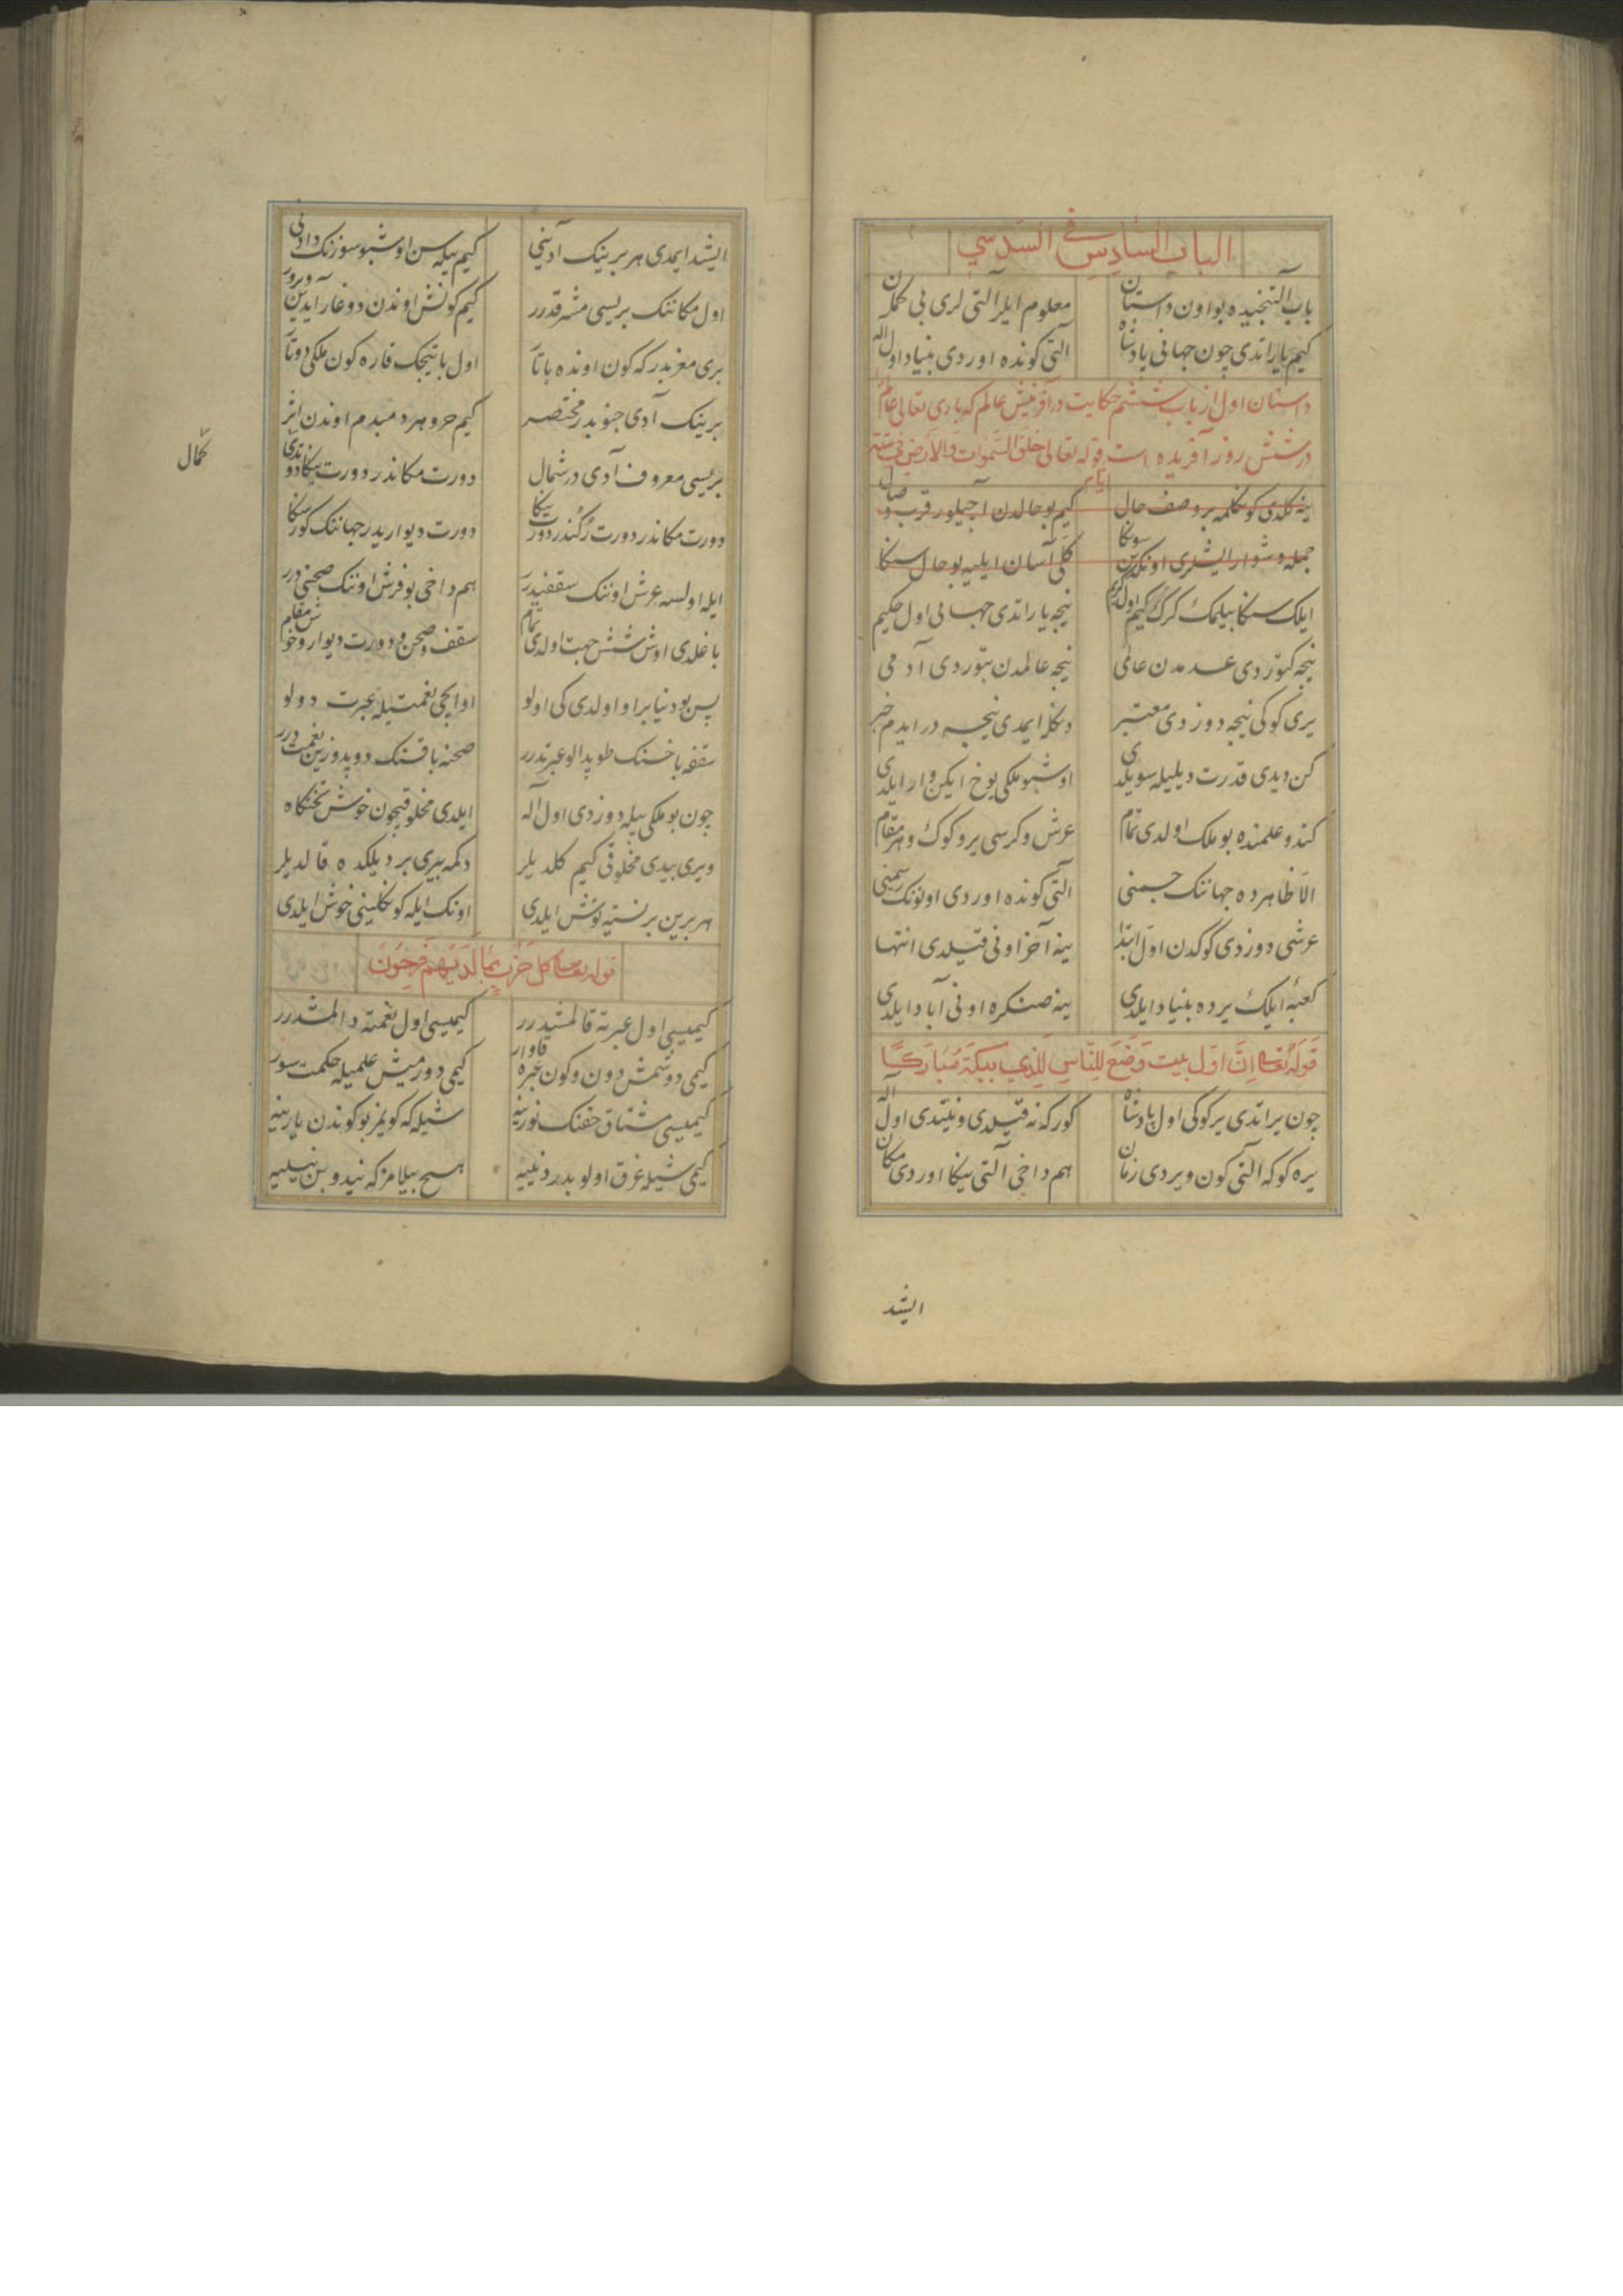 الباب السادس فی السّدسي
باب آلتنجیده بو اون داستان معلوم ایلر آلتی لری بی کمان
کیم یاراتدی چون جهانی پادشاه آلتی کونده اوردی بنیاد اول اله
داستان اول از باب ششم حکایت در آفرینش عالم که باری تعالی عالم
در شش روز آفریده است قوله تعالی خلق السّموات والارض فی ستّة ایام
ینه کلدی کوکلمه بر وصف حال کیم بو حالدن آچیلور قرب وصال
جمله دشوار ایشلری اوندین سونکا کلّی آسان ایلیه بو حال سنکا
ایلک سنکا بیلمک کرک کیم اول کریم نیجه یاراتدی جهانی اول حکیم
نیجه کتوردی عدمدن عالمی نیجه عالمدن بتوردی آدمی
یری کوکی نیجه دوزدی معتبر دنکله ایمدی نیجه در ایدم خبر
کن دیدی قدرت دیلیله سویلدی اوشبو ملکی یوخ ایکن وار ایلدی
کندو علمنده بو ملک اولدی تمام عرش و کرسی یر و کوک و هر مقام
الّا ظاهرده جهاننک جسمنی آلتی کونده اوردی اولوننک رسمینی
عرشی دوزدی کوکدن اوّل ابتدا ینه آخر اونی قیلدی انتها
کعبه ایلک یرده بنیاد ایلدی ینه صنکره اونی آباد ایلدی
قوله تعا انّ اوّل بیت وضع للنّاس للذی ببکة مبارکاً
چون یراتدی یر کوکی اول پادشاه کور که نه قیلدی و نیتدی اول اله
یره کوکه آلتی کون ویردی زمان هم داخی آلتی ینکا اوردی مکان
ایشد
ایشد ایمدی هر برینک آدینی کیم بیله سن اوشبو سوزنک دادنی
اول مکاننک بریسی مشرقدرر کیم کونش اوندن دوغار آیدین ویرور
بری مغربدر که کون اونده باتا اول باتیجک قاره کون ملکی دوتا
برینک آدی جنوبدر مختصر کیم حر و هر دمبدم اوندن اثر
بریسی معروف آدی در شمال دورت مکاندر دورت ینکا دوتدی
کمال
دورت مکاندر دورت رکندر دورت ینکا دورت دیواریدر جهاننک کور سکا
ایله اولسه عرش اوننک سقفیدرر هم داخی بو فرش اوننک صحنی درر
باغلدی اوش شش جهت اولدی تمام سقف و صحن و دورت دیوار و خوش مقام
پس بو دنیا بر او اولدی کی اولو او ایچی نعمتیله عبرت دولو
سقفه باخسنک طوپدالو عبرتدرر صحنه باقسنک دوپدوزین نعمت درر
چون بو ملکی بیله دوزدی اول اله ایلدی مخلوقیچون خوش تختکاه
ویری بیدی مخلوقی کیم کلدیلر دکمه بیری بر دیلکده قالدیلر
هر برین بر نسنیه توش ایلدی اونک ایله کوکلینی خوش ایلدی
قوله تعا کل حزب بما لدیهم فرحون
کیمیسی اول عبرته قالمشیدرر کیمیسی اول نعمته دالمشدرر
کیمی دوشمش دون و کون عبره قاوار کیمی دورمیش علمیله حکمت سور
کیمیسی مشتاق حقنک نورینه شیله که کوینر بو کوندن یارینه
کیمی شیله غرق اولوبدر دنییه هیچ بیلمز که نیدوبن نیلییه